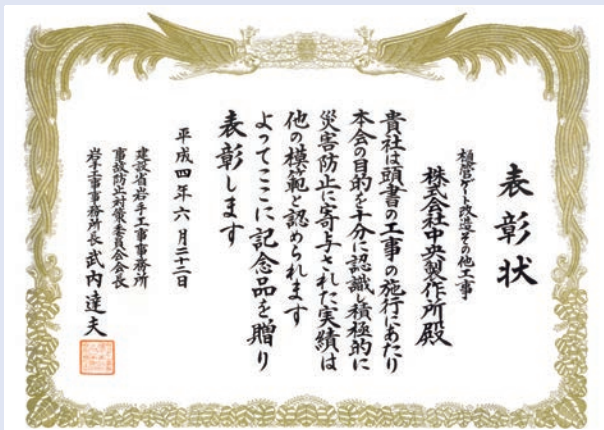 表彰状
樋管ゲート改造その他工事
株式会社中央製作所殿
貴社は頭書の工事の施行にあたり
本会の目的を十分に認識し積極的に
災害防止に寄与された実績は
他の模範と認められます
よってここに記念品を贈り
表彰します
平成四年六月三十二日
建設省岩手工事事務所
事故防止対策委員会会長
岩手工事事務所長 武内達夫